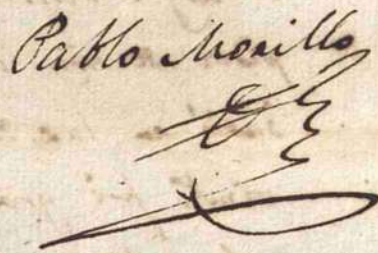 Pablo Morillo